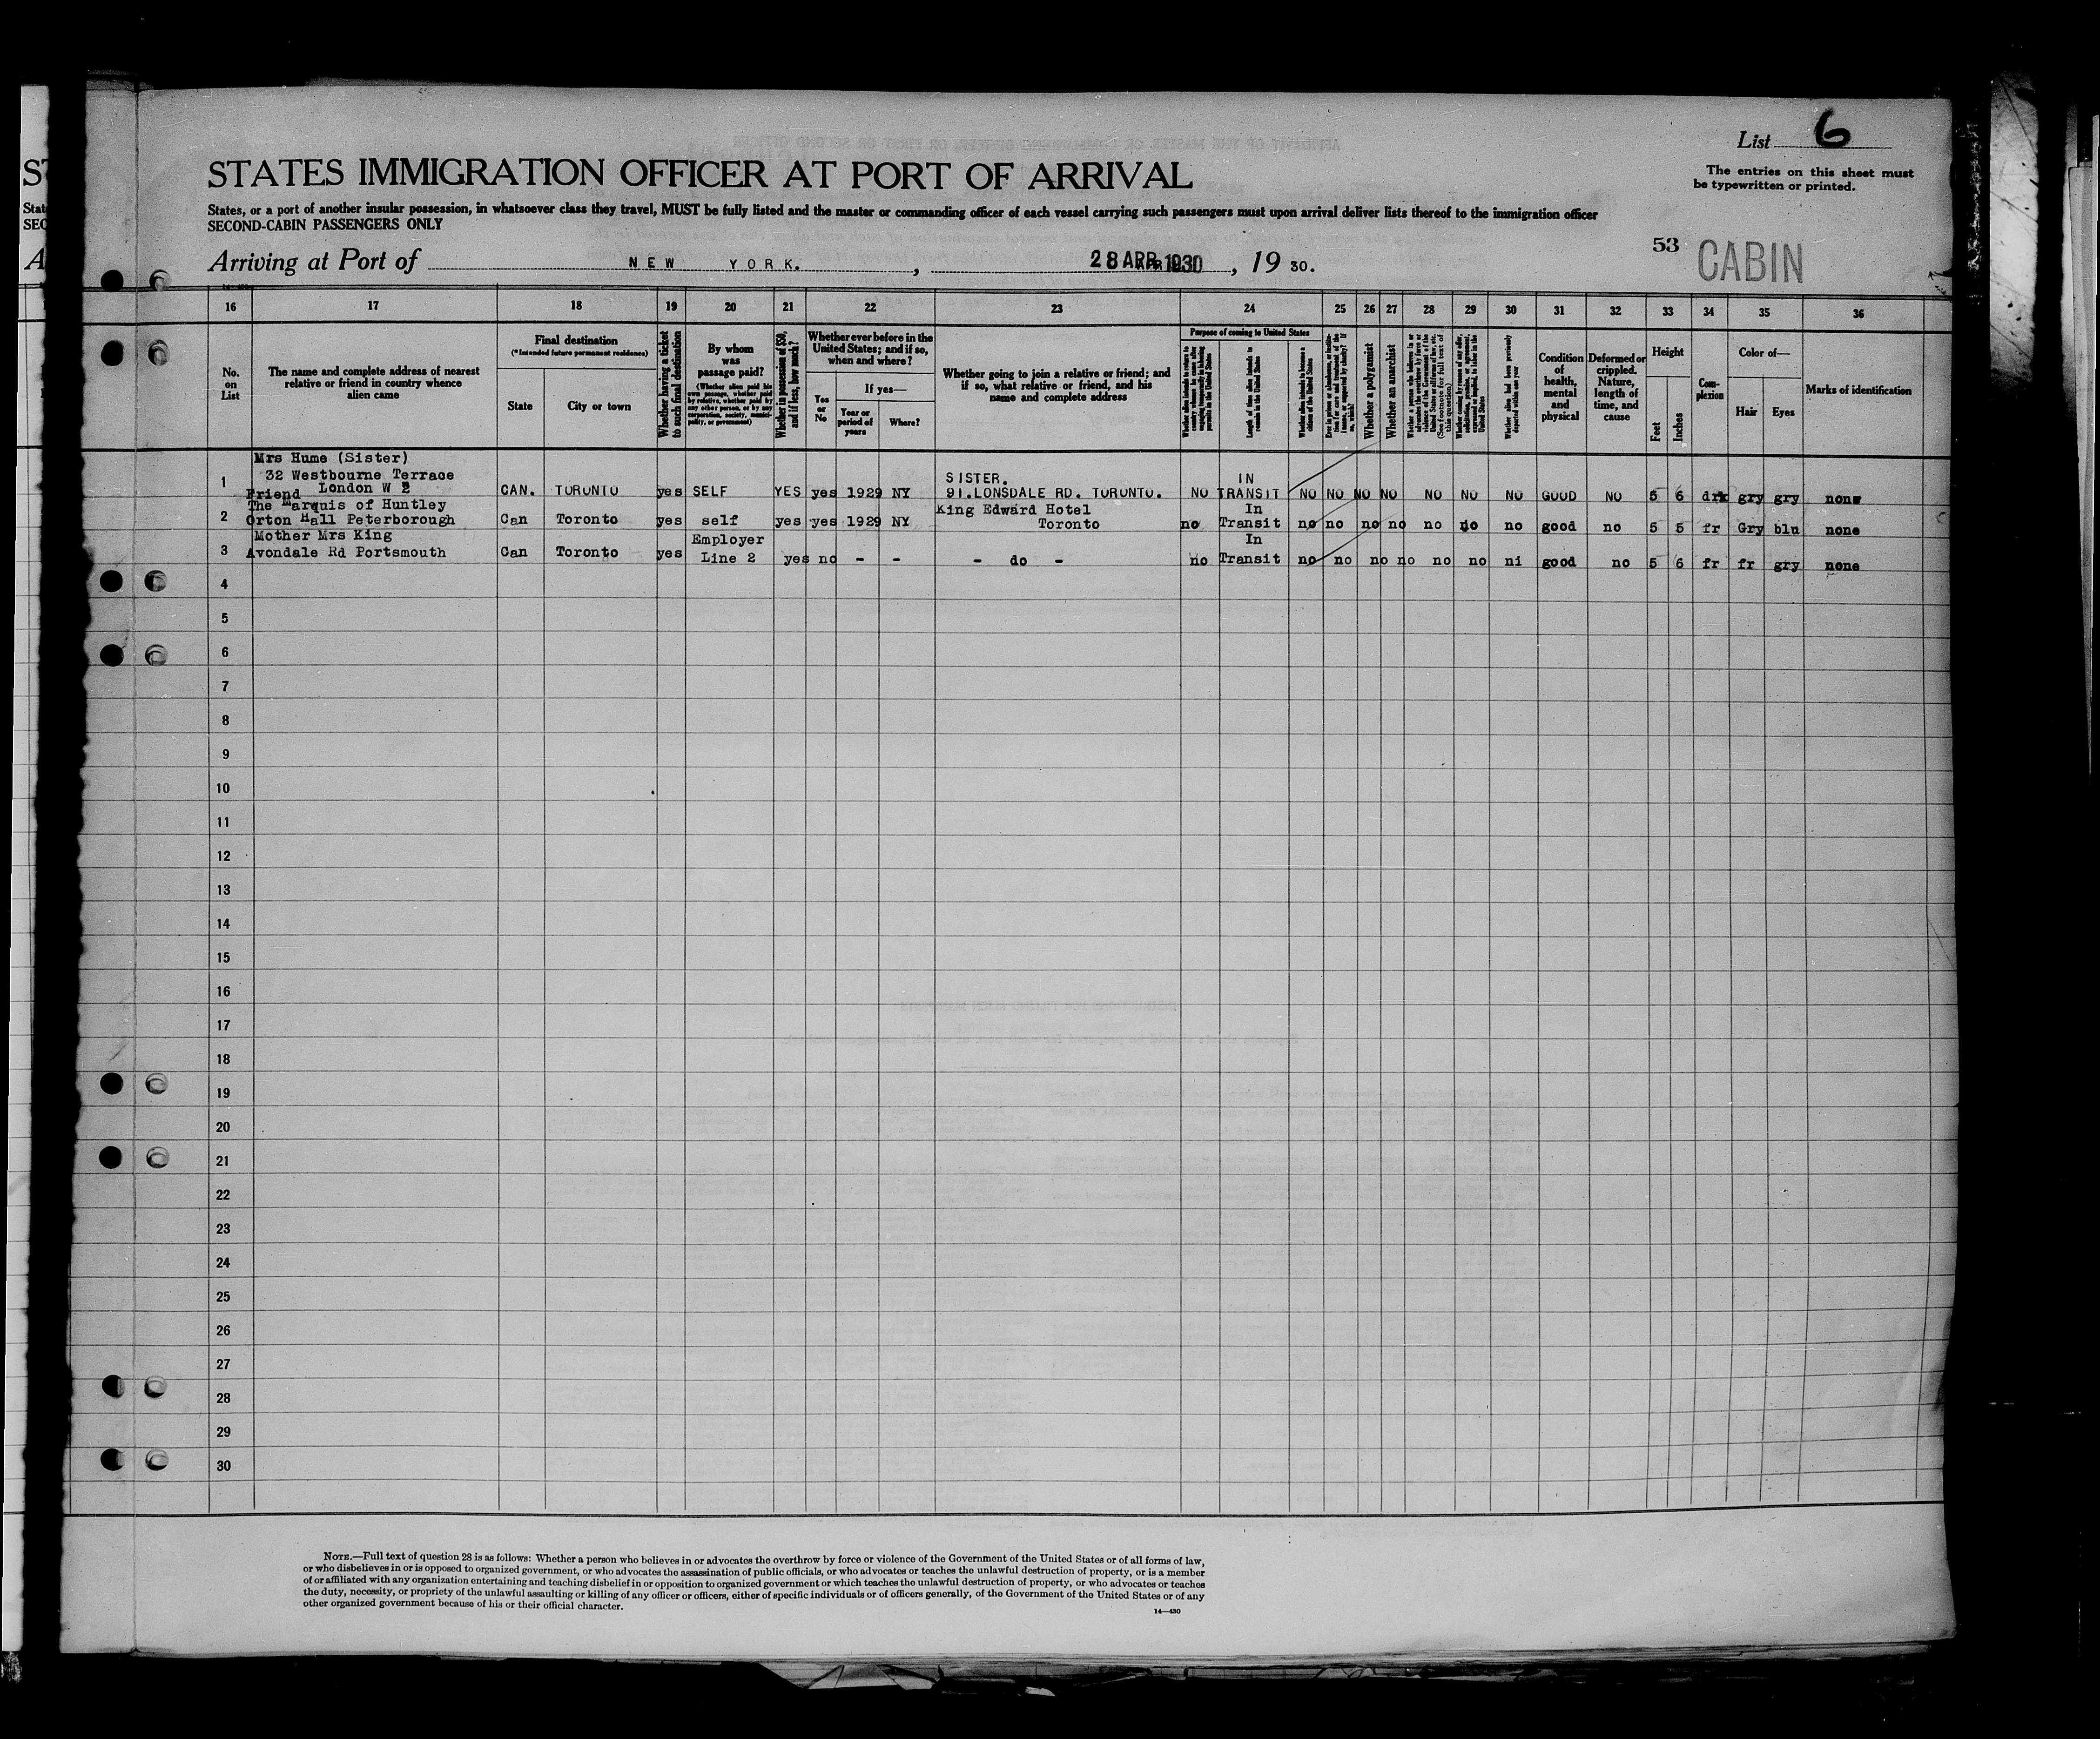 List 6
The entries on this sheet must
be typewritten or printed.
STATES IMMIGRATION OFFICER AT PORT OF ARRIVAL
States, or a port of another insular possession, in whatsoever class they travel, MUST be fully listed and the master or commanding officer of each vessel carrying such passengers must upon arrival deliver lists thereof to the immigration officer
SECOND-CABIN PASSENGERS ONLY
53 CABIN
Arriving at Port of NEW YORK. , 28 APR 1930 , 19 30.
16 17 18 19 20 21 22 23 24 25 26 27 28 29 30 31 32 33 34 35 36
No. on List
The name and complete address of nearest relative or friend in country whence alien came
Final destination
(*Intended future permanent residence)
State
City or town
Whether having a ticket to such final destination
By whom was passage paid?
(Whether alien paid his own passage, whether paid by relative, whether paid by any other person, or by any corporation, society, municipality, or government)
Whether in possession of $50, and if less, how much?
Whether ever before in the United States; and if so, when and where?
Yes or No
If yes—
Year or period of years
Where?
Whether going to join a relative or friend; and if so, what relative or friend, and his name and complete address
Purpose of coming to United States
Whether alien intends to return to country whence he came after engaging temporarily in laboring pursuits in the United States
Length of time alien intends to remain in the United States
Whether alien intends to become a citizen of the United States
Whether a polygamist
Whether an anarchist
Whether a person who believes in or advocates the overthrow by force or violence of the Government of the United States or all forms of law, etc. (See footnote for full text of this question)
Whether coming by reason of any offer, solicitation, promise, or agreement, expressed or implied, to labor in the United States
Whether alien had been previously deported within one year
Condition of health, mental and physical
Deformed or crippled. Nature, length of time, and cause
Height
Feet
Inches
Complexion
Color of—
Hair
Eyes
Marks of identification
Mrs Hume (Sister)
32 Westbourne Terrace SISTER. IN
1 London W 2 CAN. TORONTO yes SELF YES yes 1929 NY 91.LONSDALE RD. TORONTO. NO TRANSIT NO NO NO NO NO NO NO GOOD NO 5 6 drk gry gry none
Friend
The Marquis of Huntley King Edward Hotel In
2 Orton Hall Peterborough Can Toronto yes self yes yes 1929 NY Toronto no Transit no no no no no no no good no 5 5 fr Gry blu none
Mother Mrs King Employer In
3 Avondale Rd Portsmouth Can Toronto yes Line 2 yes no - - - do - no Transit no no no no no no ni good no 5 6 fr fr gry none
4
5
6
7
8
9
10
11
12
13
14
15
16
17
18
19
20
21
22
23
24
25
26
27
28
29
30
NOTE.—Full text of question 28 is as follows: Whether a person who believes in or advocates the overthrow by force or violence of the Government of the United States or of all forms of law,
or who disbelieves in or is opposed to organized government, or who advocates the assassination of public officials, or who advocates or teaches the unlawful destruction of property, or is a member
of or affiliated with any organization entertaining and teaching disbelief in or opposition to organized government or which teaches the unlawful destruction of property, or who advocates or teaches
the duty, necessity, or propriety of the unlawful assaulting or killing of any officer or officers, either of specific individuals or of officers generally, of the Government of the United States or of any
other organized government because of his or their official character.
14—430